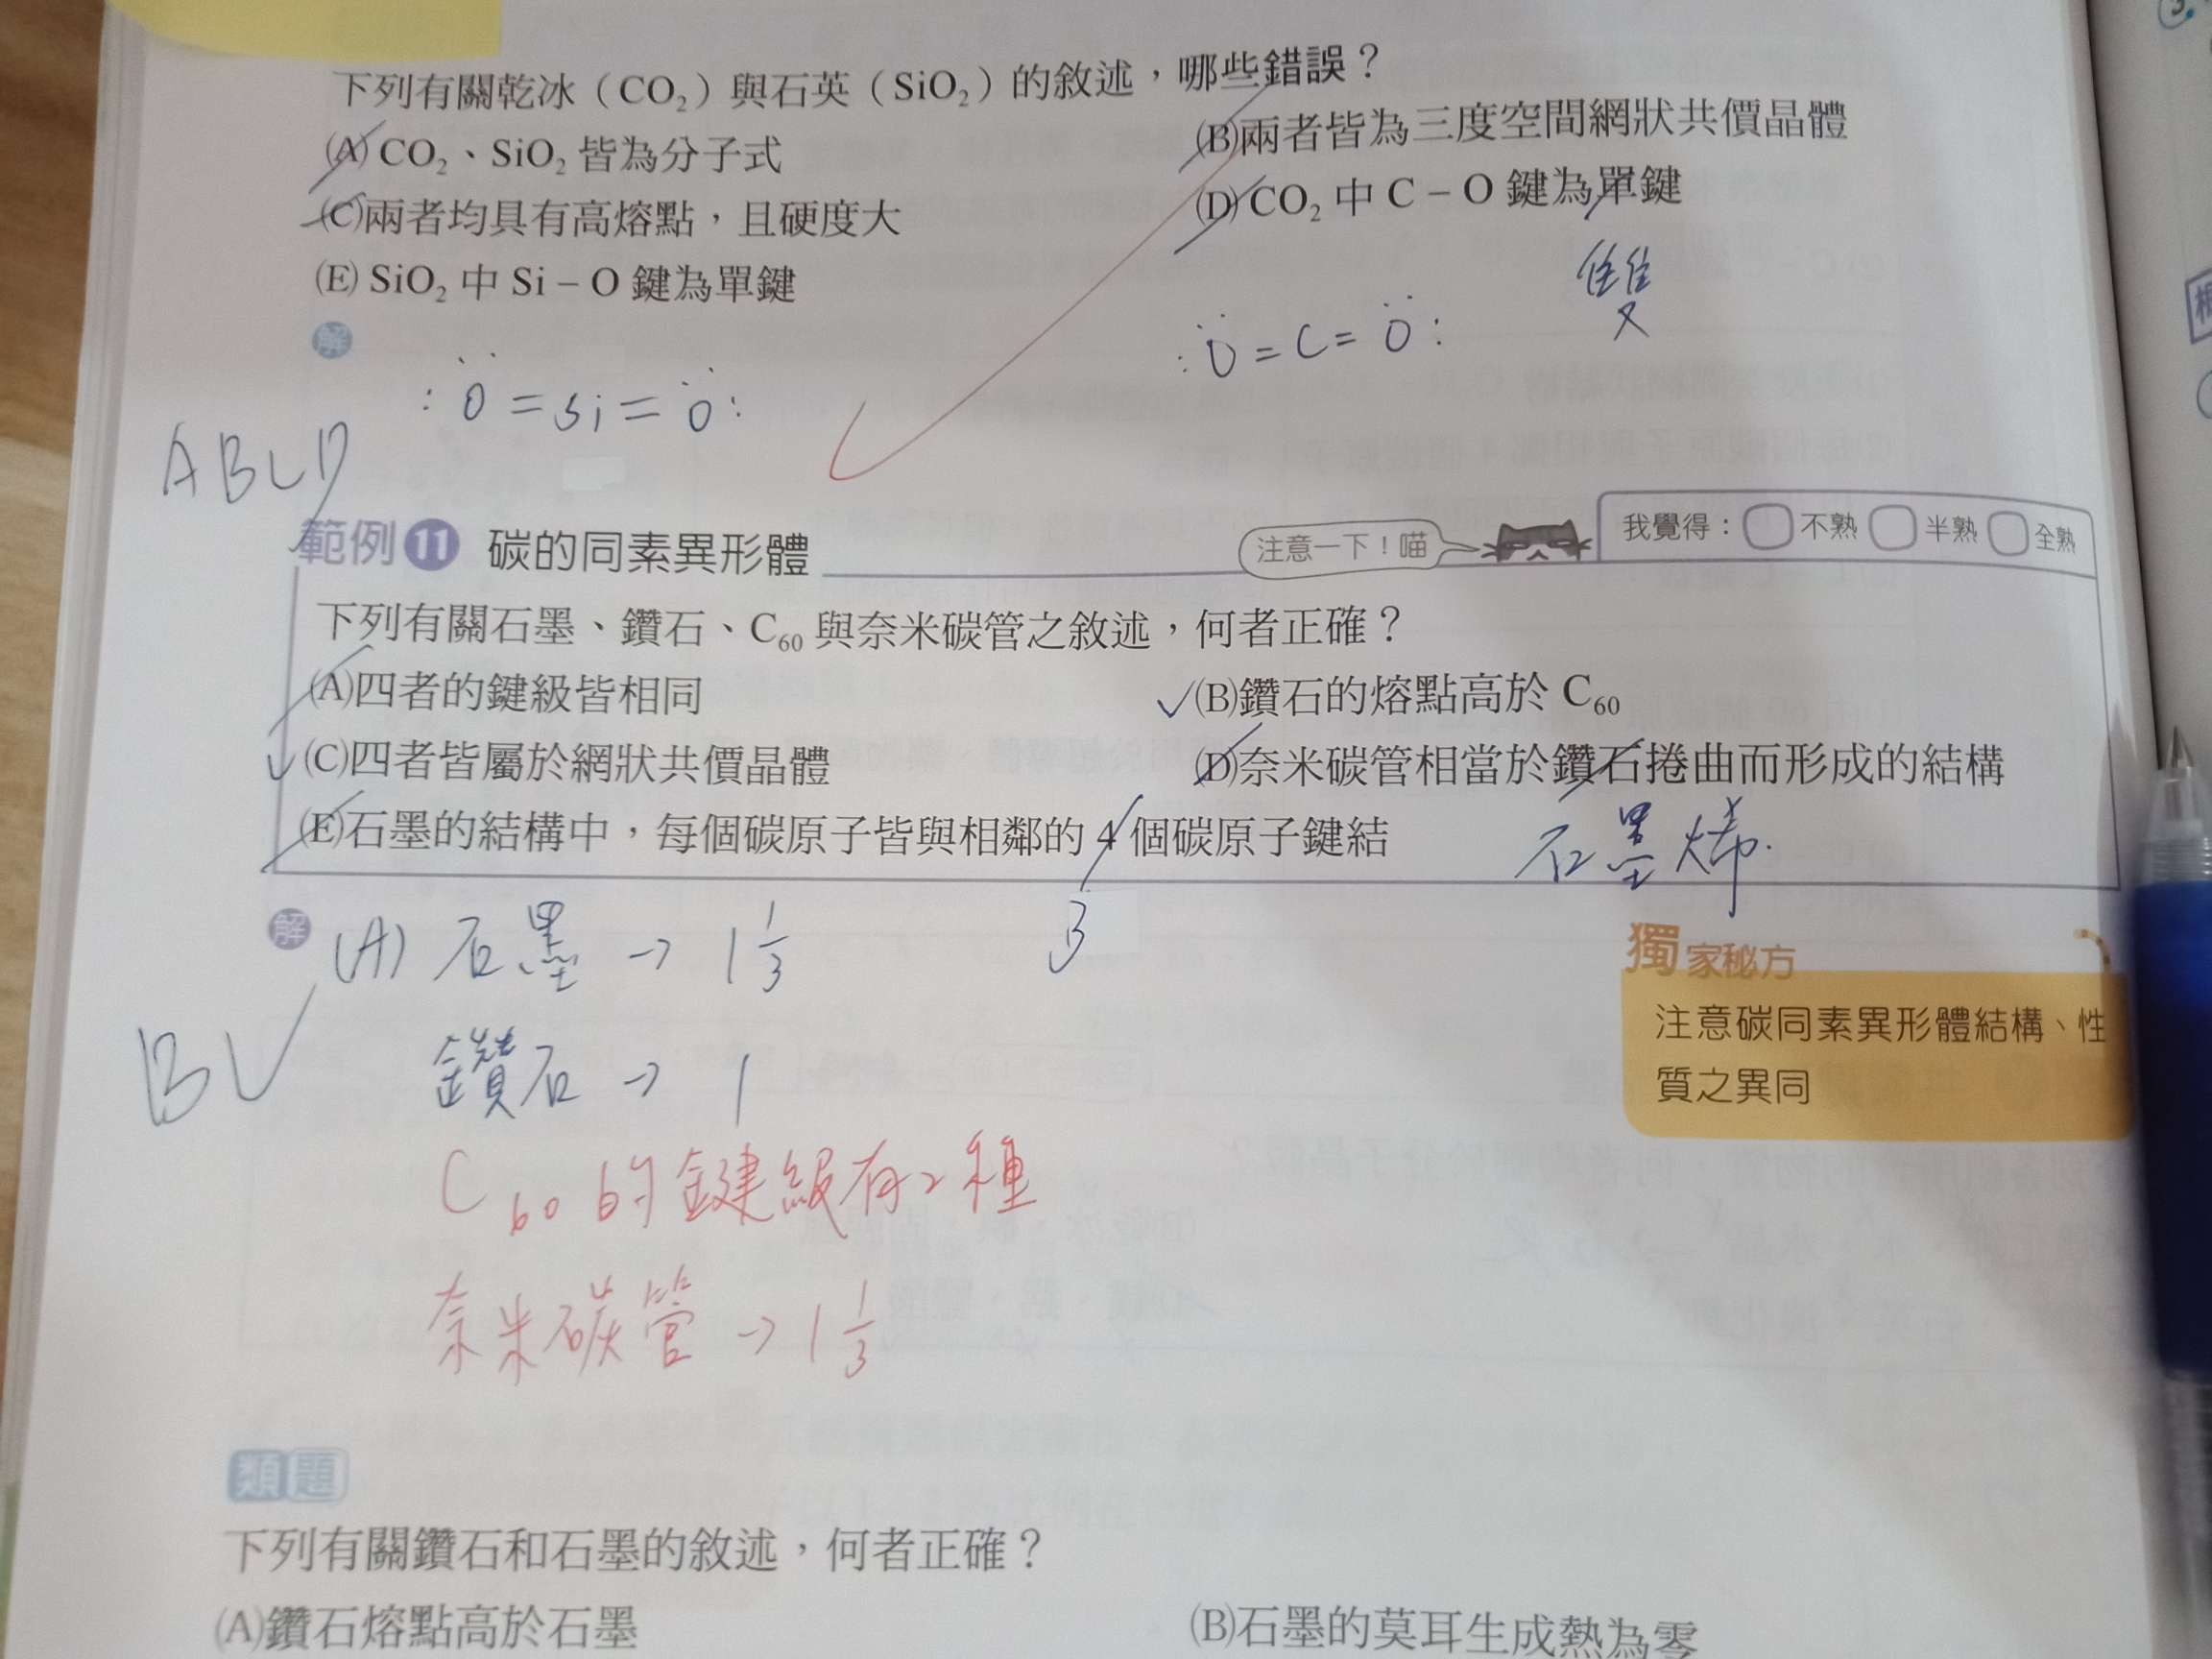 下列有關乾冰（CO₂）與石英（SiO₂）的敘述，哪些錯誤？
(A) CO₂、SiO₂ 皆為分子式
(B)兩者皆為三度空間網狀共價晶體
(C)兩者均具有高熔點，且硬度大
(D) CO₂ 中 C－O 鍵為單鍵
雙
(E) SiO₂ 中 Si－O 鍵為單鍵
解
:Ö=C=Ö:
:Ö=Si=Ö:
ABCD
範例 11 碳的同素異形體
注意一下！喵
我覺得：○不熟 ○半熟 ○全熟
下列有關石墨、鑽石、C₆₀ 與奈米碳管之敘述，何者正確？
(A)四者的鍵級皆相同
✓(B)鑽石的熔點高於 C₆₀
(C)四者皆屬於網狀共價晶體
(D)奈米碳管相當於鑽石捲曲而形成的結構
石墨烯
(E)石墨的結構中，每個碳原子皆與相鄰的 4 個碳原子鍵結
3
解
(A) 石墨 → 1 1/3
鑽石 → 1
C₆₀的鍵級有2種
奈米碳管 → 1 1/3
B
獨家秘方
注意碳同素異形體結構、性
質之異同
類題
下列有關鑽石和石墨的敘述，何者正確？
(A)鑽石熔點高於石墨
(B)石墨的莫耳生成熱為零